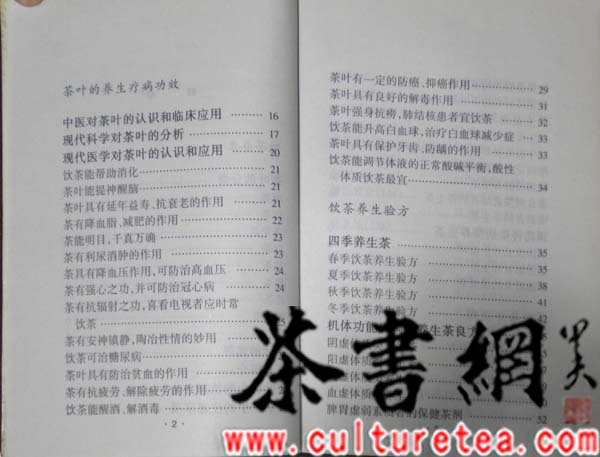 茶叶的养生疗病功效
中医对茶叶的认识和临床应用 ……… 16
现代科学对茶叶的分析 ……… 17
现代医学对茶叶的认识和应用 ……… 20
饮茶能帮助消化 ……… 21
茶叶能提神醒脑 ……… 21
茶叶具有延年益寿、抗衰老的作用 ……… 21
茶有降血脂、减肥的作用 ……… 22
茶能明目,千真万确 ……… 23
茶有利尿消肿的作用 ……… 23
茶具有降血压作用,可防治高血压 ……… 24
茶有强心之功,并可防治冠心病 ……… 24
茶有抗辐射之功,喜看电视者应时常
饮茶 ………
茶有安神镇静、陶冶性情的妙用
饮茶可治糖尿病 ………
茶叶具有防治贫血的作用 ………
茶有抗疲劳、解除疲劳的作用 ………
饮茶能醒酒、解酒毒 ………
· 2 ·
茶叶有一定的防癌、抑癌作用 ……… 29
茶叶具有良好的解毒作用 ……… 31
茶叶强身抗痨,肺结核患者宜饮茶 ……… 32
饮茶能升高白血球,治疗白血球减少症 ……… 33
茶叶具有保护牙齿、防龋的作用 ……… 33
饮茶能调节体液的正常酸碱平衡,酸性
体质饮茶最宜 ……… 34
饮茶养生验方
四季养生茶 ……… 35
春季饮茶养生验方 ……… 35
夏季饮茶养生验方 ……… 38
秋季饮茶养生验方 ……… 41
冬季饮茶养生验方 ……… 42
机体功能 养生茶良方
阴虚体
阳虚体质
气虚体
血虚体质
脾胃虚弱 的保健茶剂 ……… 52
茶書網
www.culturetea.com